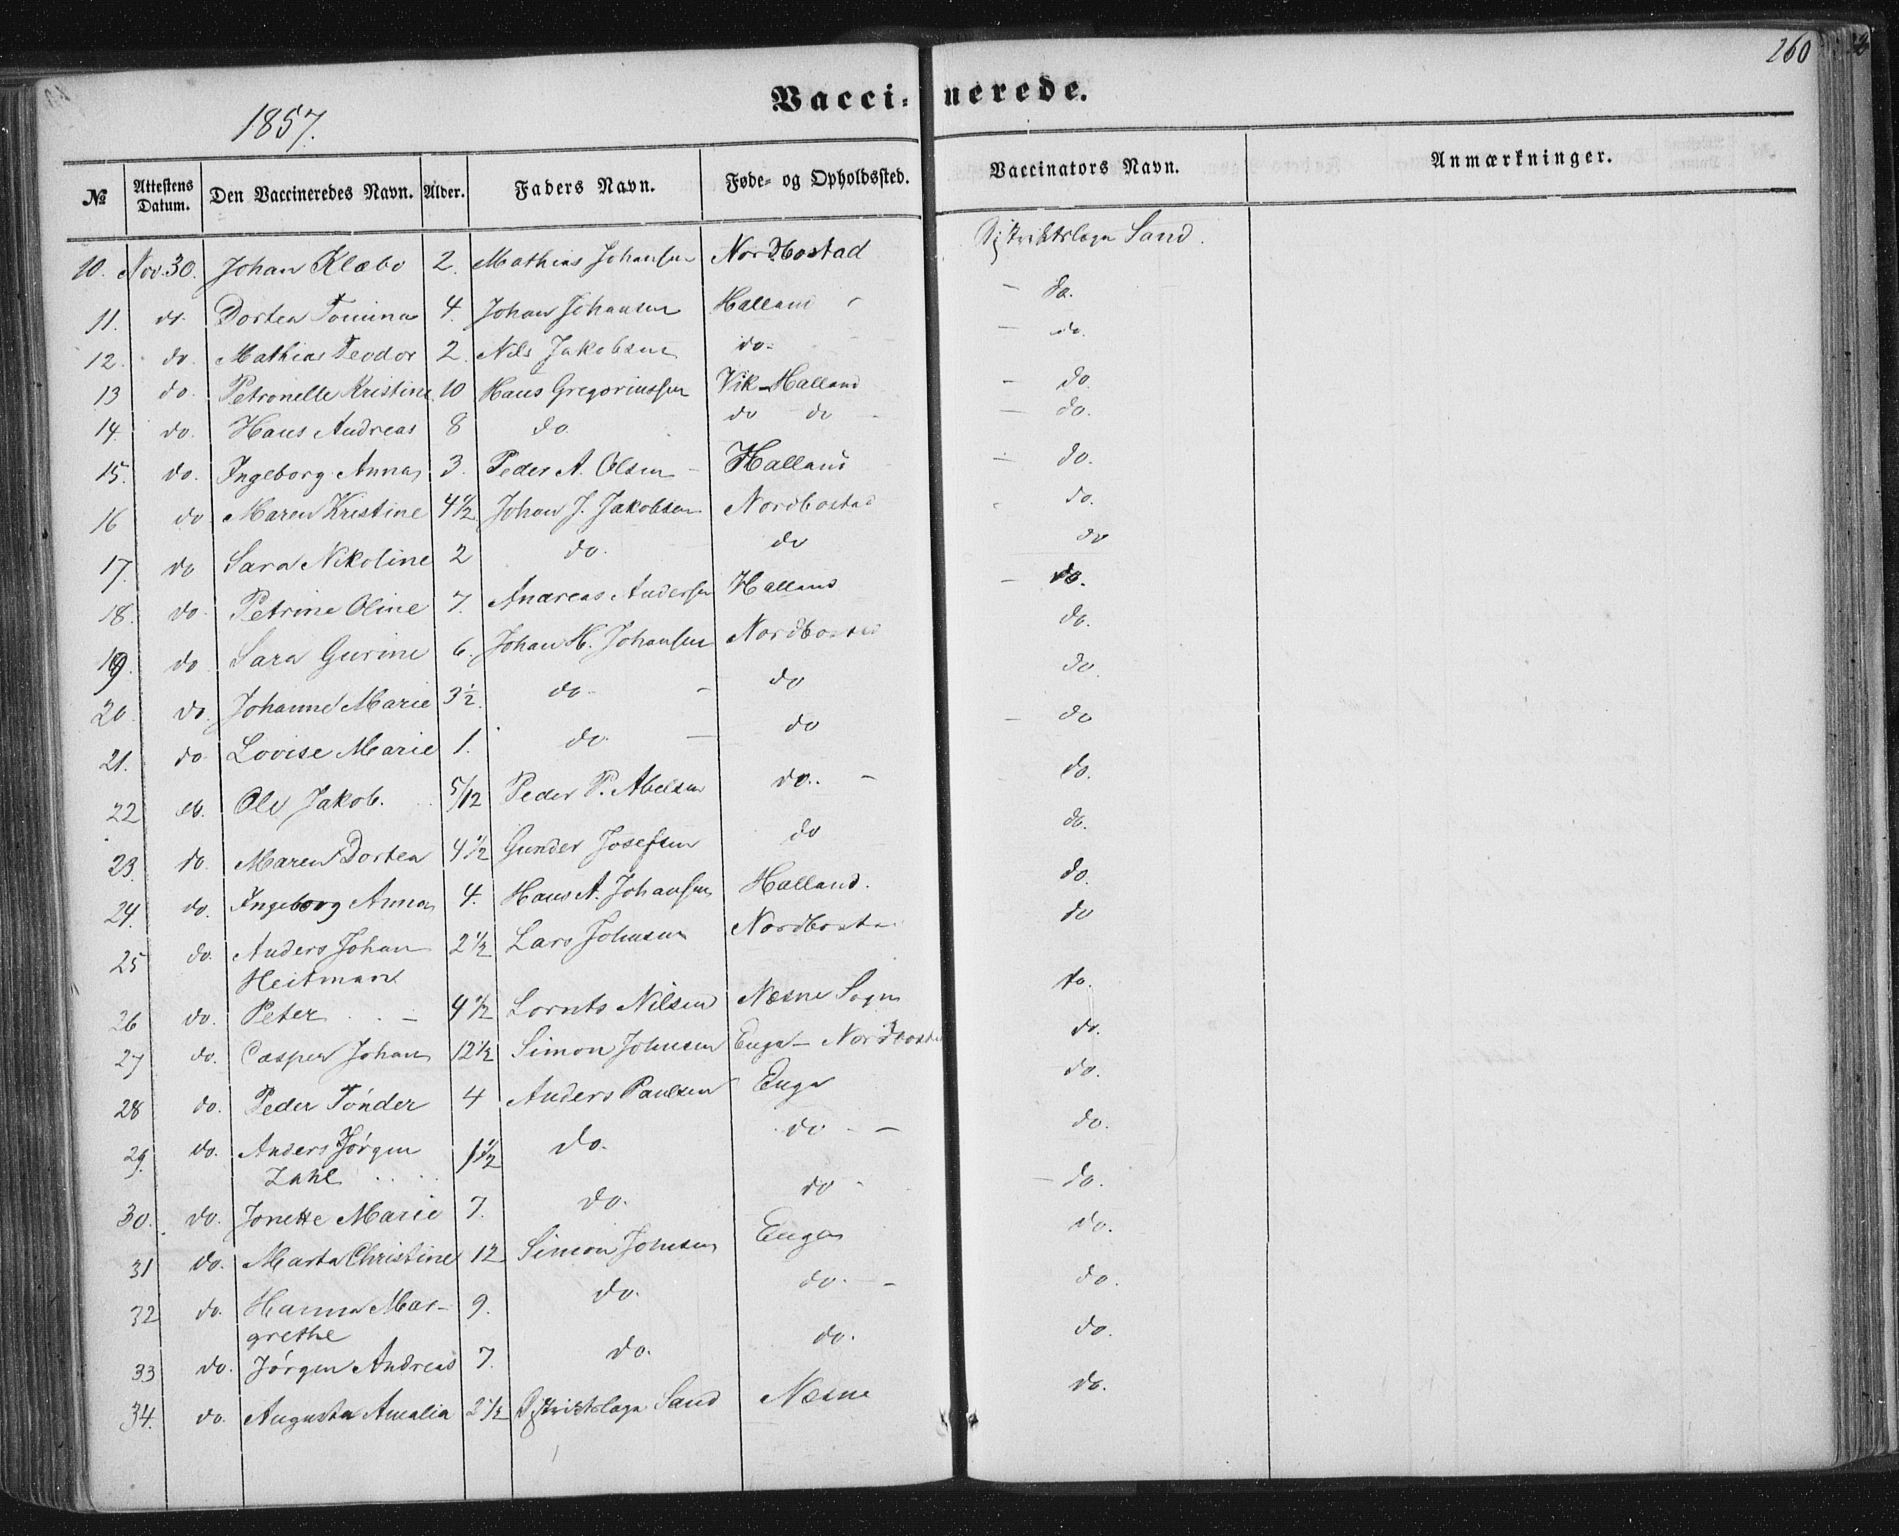 260
Vaccinerede.
1857.
№ Attestens Datum. Den Vaccineredes Navn. Alder. Faders Navn. Føde- og Opholdssted. Vaccinators Navn. Anmærkninger.
10. Nov. 30. Johan Klæbo 2. Mathias Johansen Nordbostad Distriktslæge Sand.
11. do. Dortea Tomina 4. Johan Johansen Halland - do.
12. do. Mathias Teodor 2. Nils Jakobsen do. - do.
13 do. Petronelle Kristine 10 Hans Gregoriussen Vik-Halland - do.
14. do. Hans Andreas 8 do. do do - do.
15. do. Ingeborg Anna 3. Peder A. Olsen Halland - do.
16 do Maren Kristine 4 1/2 Johan J. Jakobsen Nordbostad - do.
17. do Sara Nikoline 2 do. do do
18. do. Petrine Oline 7. Andreas Andersen Halland - do.
19. do. Sara Gurine 6. Johan H. Johansen Nordbostad do.
20. do. Johanne Marie 3 1/2. do. - do do.
21. do. Lovise Marie 1. do. - do - do
22 do. Ole Jakob. 5/12 Peder P. Abelsen do. - do.
23. do. Maren Dortea 4 1/2 Gunder Josefsen do do.
24. do. Ingeborg Anna 4. Hans A. Johansen Halland. do.
25 do. Anders Johan 2 1/2 Lars Johnsen Nordbosta do
Heitman
26 do. Peter - 4 1/2 Lornts Nilsen Næsne Sogn do.
27 do. Casper Johan 12 1/2 Simon Johnsen Enga - Nordbostad do.
28 do. Peder Tønder 4 Anders Paulsen Enga do.
29. do. Anders Jørgen 1 1/2 do. do - do.
Zahl
30. do. Jonette Marie 7. do. do - - do.
31 do. Marta Christine 12 Simon Johnsen Enga do.
32 do. Hanna Mar- 9. do. do. - do.
grethe
33 do. Jørgen Andreas 7. do. do. do.
34. do. Augusta Amalia 2 1/2 Distriktslæge Sand Næsne do.